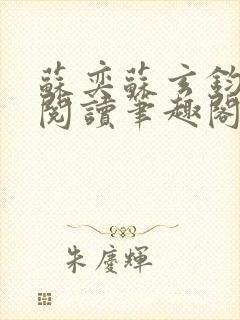 蘇奕蘇玄鈞
閱讀筆趣閣
朱慶輝